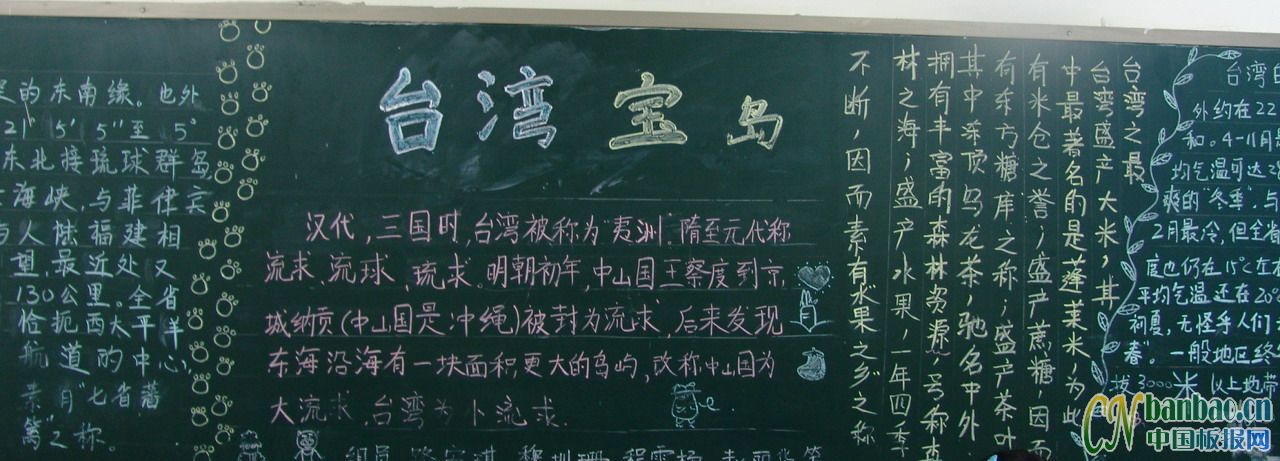 台湾宝岛
的东南缘。也外
21°5′5″至 5°
东北接琉球群岛
海峡，与菲律宾
人怯福建相
望，最近处又
130公里。全省
恰扼西太平洋
航道的中心，
素月"七省藩
篱"之称。
汉代，三国时，台湾被称为"夷洲"。隋至元代称
流求、流球、琉求。明朝初年，中山国王察度到京
城纳贡(中山国是冲绳)被封为流求，后来发现
东海沿海有一块面积更大的乌屿，改称中山国为
大流求，台湾为小流求.
组员
台湾之最
台湾盛产大米，其
中最著名的是蓬莱米，为此
有米仓之誉；盛产蔗糖，因而
有东方糖库之称；盛产茶叶
其中冻顶乌龙茶，驰名中外
拥有丰富的森林资源，号称森
林之海；盛产水果，一年四季
不断，因而素有水果之乡之称
台湾
外约在22
和。4-11月
均气温可达2
爽的"冬季"，与
2月最冷，但全省
度也仍在15℃左右
平均气温还在20°
初夏，无怪乎人们
春"。一般地区终
拔3000米以上地带
CNbanbao.cn
中国板报网